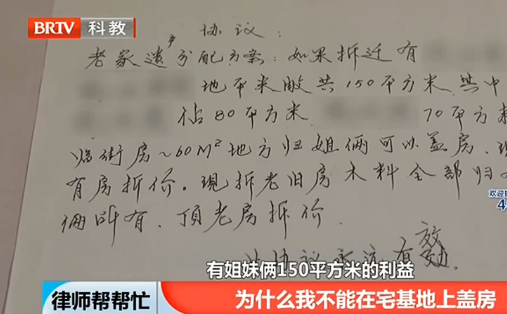 BRTV 科教
协议:
老家遗产分配方案:如果拆迁有
地平米敞共150平方米.其中
佔80平方米. 70平方米
临街房~60M²地方归姐俩可以盖房.现
有房折价。现拆老旧房木料全部归
俩所有.顶老房折价.
协议永远有效.
有姐妹俩150平方米的利益
律师帮帮忙 为什么我不能在宅基地上盖房